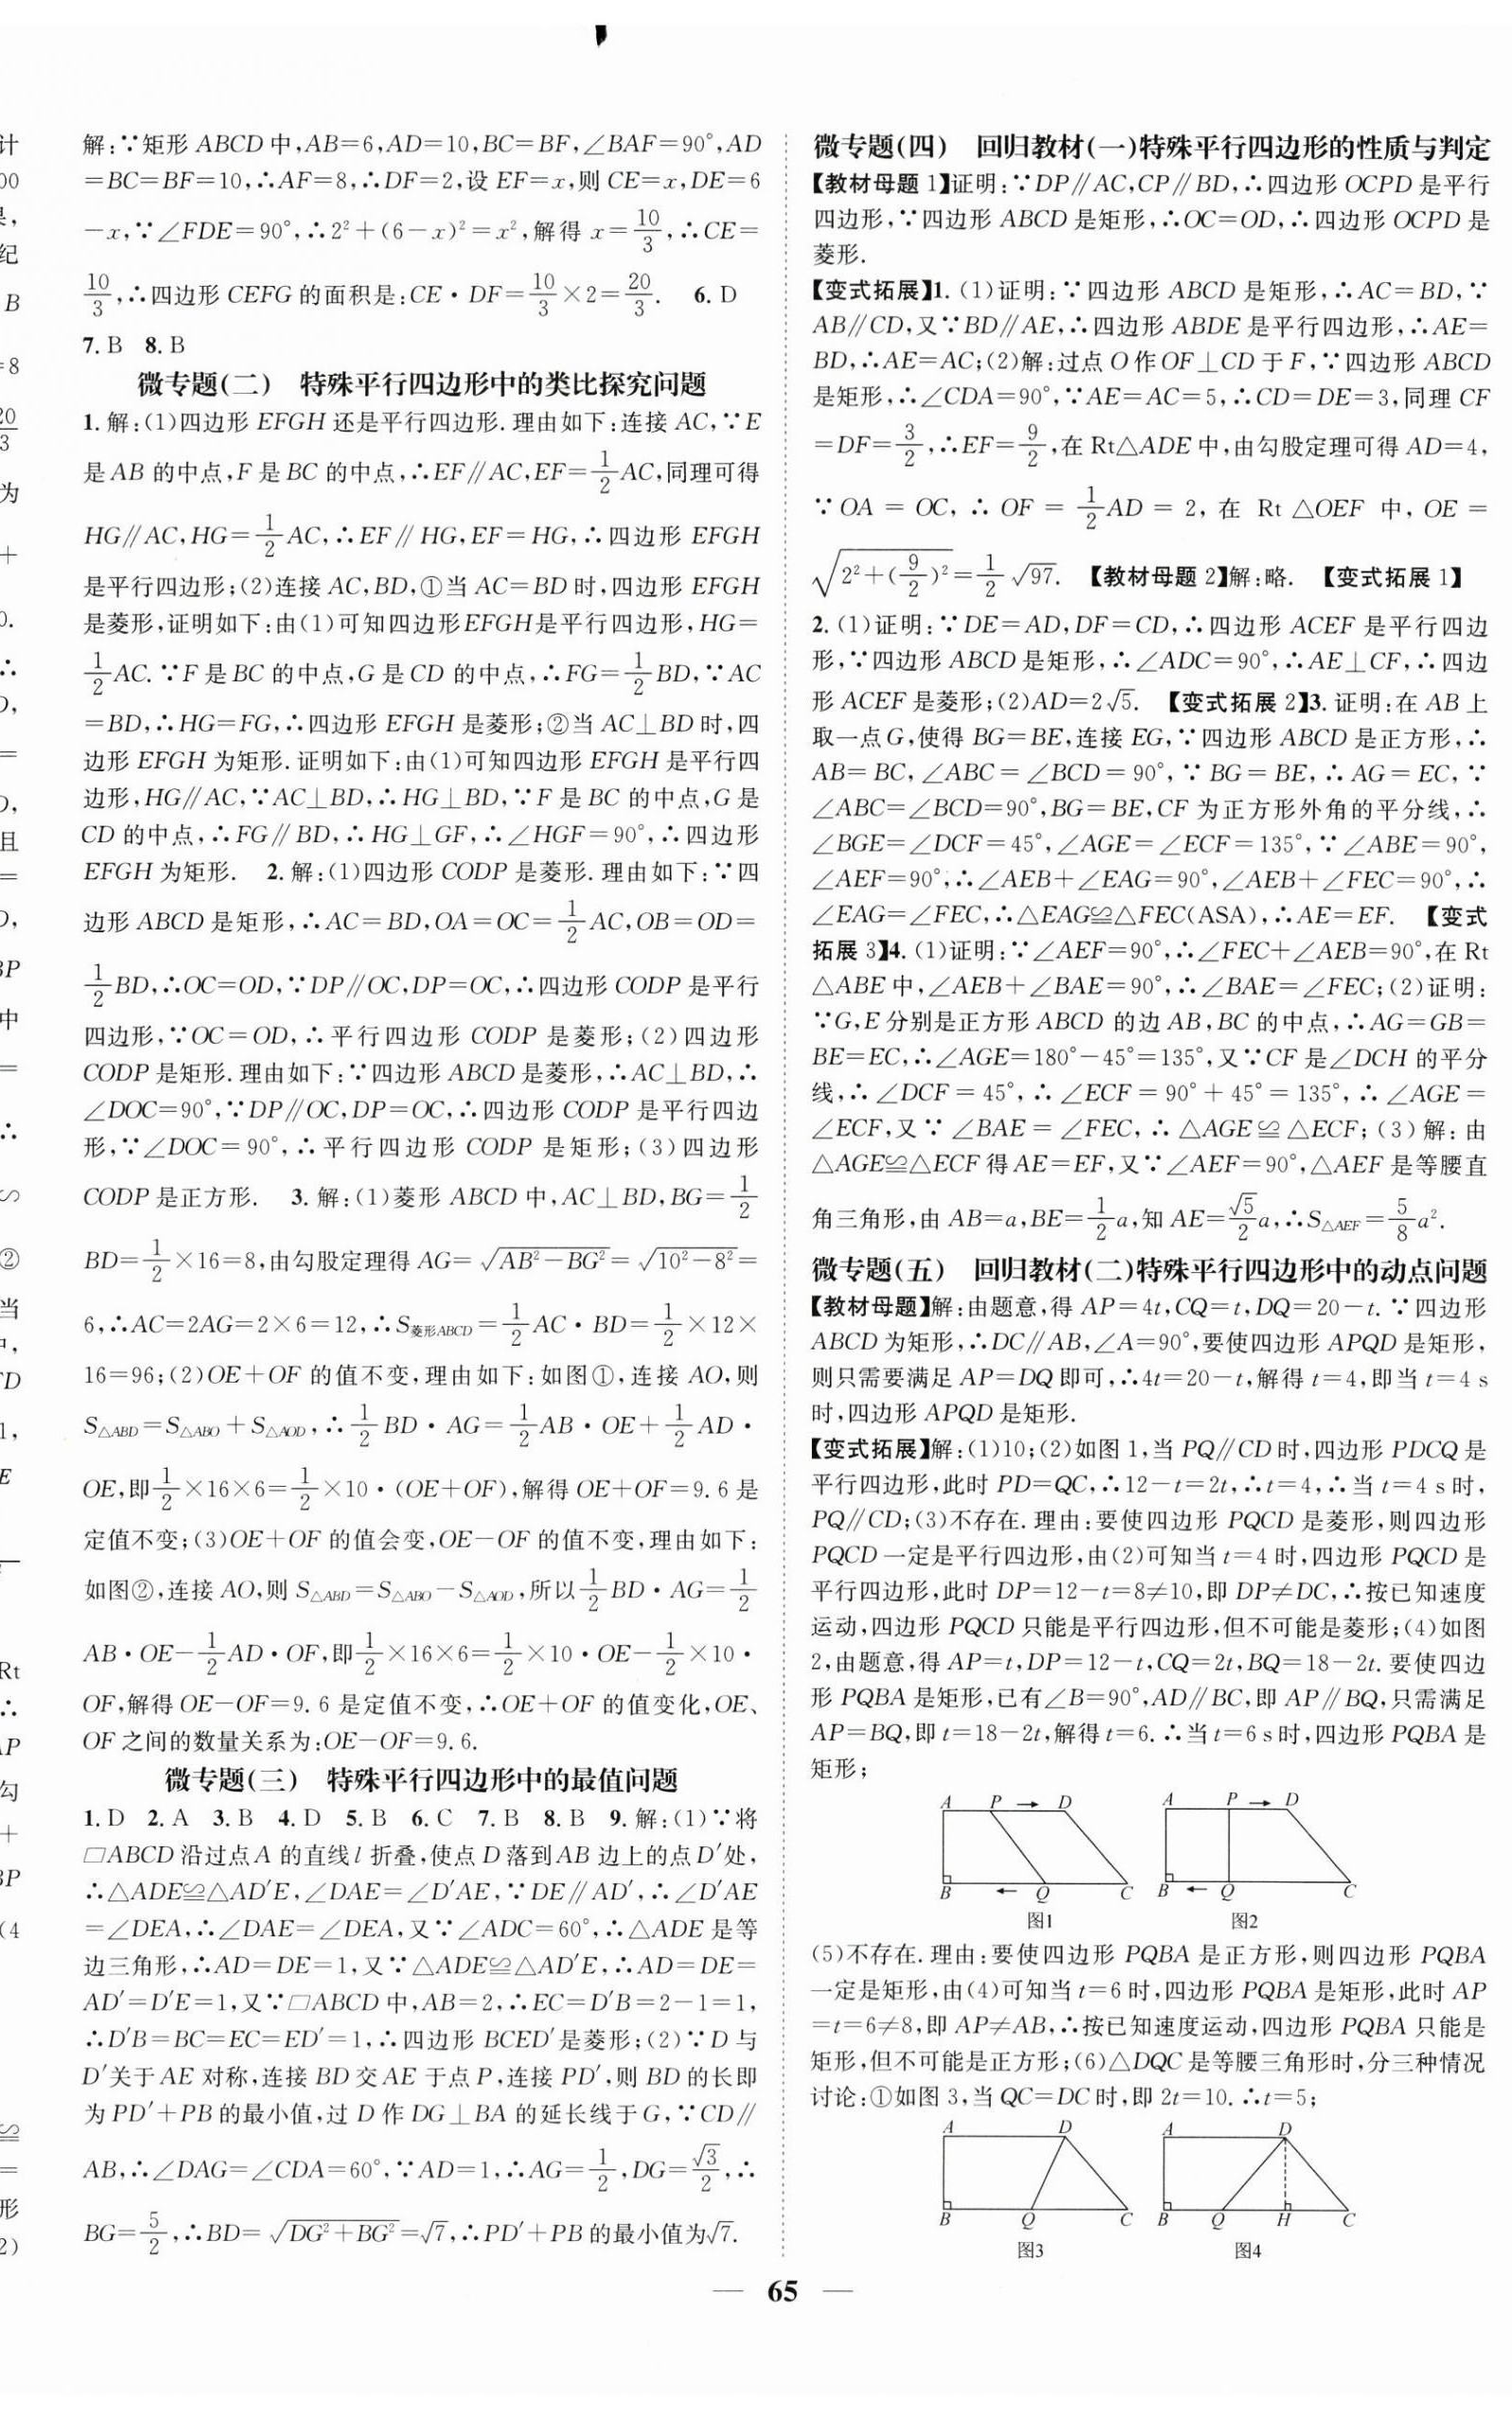 解:∵矩形 ABCD 中,AB=6,AD=10,BC=BF,∠BAF=90°,AD
=BC=BF=10,∴AF=8,∴DF=2,设 EF=x,则 CE=x,DE=6
-x,∵∠FDE=90°,∴2²+(6-x)²=x²,解得 x=10/3,∴CE=
10/3,∴四边形 CEFG 的面积是:CE·DF=10/3×2=20/3. 6. D
7. B 8. B
微专题(二) 特殊平行四边形中的类比探究问题
1. 解:(1)四边形 EFGH 还是平行四边形.理由如下:连接 AC,∵E
是 AB 的中点,F 是 BC 的中点,∴EF∥AC,EF=1/2AC,同理可得
HG∥AC,HG=1/2AC,∴EF∥HG,EF=HG,∴四边形 EFGH
是平行四边形;(2)连接 AC,BD,①当 AC=BD 时,四边形 EFGH
是菱形,证明如下:由(1)可知四边形EFGH是平行四边形,HG=
1/2AC.∵F 是 BC 的中点,G 是 CD 的中点,∴FG=1/2BD,∵AC
=BD,∴HG=FG,∴四边形 EFGH 是菱形;②当 AC⊥BD 时,四
边形 EFGH 为矩形.证明如下:由(1)可知四边形 EFGH 是平行四
边形,HG∥AC,∵AC⊥BD,∴HG⊥BD,∵F 是 BC 的中点,G 是
CD 的中点,∴FG∥BD,∴HG⊥GF,∴∠HGF=90°,∴四边形
EFGH 为矩形. 2. 解:(1)四边形 CODP 是菱形.理由如下:∵四
边形 ABCD 是矩形,∴AC=BD,OA=OC=1/2AC,OB=OD=
1/2BD,∴OC=OD,∵DP∥OC,DP=OC,∴四边形 CODP 是平行
四边形,∵OC=OD,∴平行四边形 CODP 是菱形;(2)四边形
CODP 是矩形.理由如下:∵四边形 ABCD 是菱形,∴AC⊥BD,∴
∠DOC=90°,∵DP∥OC,DP=OC,∴四边形 CODP 是平行四边
形,∵∠DOC=90°,∴平行四边形 CODP 是矩形;(3)四边形
CODP 是正方形. 3. 解:(1)菱形 ABCD 中,AC⊥BD,BG=1/2
BD=1/2×16=8,由勾股定理得 AG=√(AB²-BG²)=√(10²-8²)=
6,∴AC=2AG=2×6=12,∴S菱形ABCD=1/2AC·BD=1/2×12×
16=96;(2)OE+OF 的值不变,理由如下:如图①,连接 AO,则
S△ABD=S△ABO+S△AOD,∴1/2BD·AG=1/2AB·OE+1/2AD·
OE,即1/2×16×6=1/2×10·(OE+OF),解得 OE+OF=9.6 是
定值不变;(3)OE+OF 的值会变,OE-OF 的值不变,理由如下:
如图②,连接 AO,则 S△ABD=S△ABO-S△AOD,所以1/2BD·AG=1/2
AB·OE-1/2AD·OF,即1/2×16×6=1/2×10·OE-1/2×10·
OF,解得 OE-OF=9.6 是定值不变,∴OE+OF 的值变化,OE、
OF 之间的数量关系为:OE-OF=9.6.
微专题(三) 特殊平行四边形中的最值问题
1. D 2. A 3. B 4. D 5. B 6. C 7. B 8. B 9. 解:(1)∵将
▱ABCD 沿过点 A 的直线 l 折叠,使点 D 落到 AB 边上的点 D′处,
∴△ADE≌△AD′E,∠DAE=∠D′AE,∵DE∥AD′,∴∠D′AE
=∠DEA,∴∠DAE=∠DEA,又∵∠ADC=60°,∴△ADE 是等
边三角形,∴AD=DE=1,又∵△ADE≌△AD′E,∴AD=DE=
AD′=D′E=1,又∵▱ABCD 中,AB=2,∴EC=D′B=2-1=1,
∴D′B=BC=EC=ED′=1,∴四边形 BCED′是菱形;(2)∵D 与
D′关于 AE 对称,连接 BD 交 AE 于点 P,连接 PD′,则 BD 的长即
为 PD′+PB 的最小值,过 D 作 DG⊥BA 的延长线于 G,∵CD∥
AB,∴∠DAG=∠CDA=60°,∵AD=1,∴AG=1/2,DG=√3/2,∴
BG=5/2,∴BD=√(DG²+BG²)=√7,∴PD′+PB 的最小值为√7.
微专题(四) 回归教材(一)特殊平行四边形的性质与判定
【教材母题 1】证明:∵DP∥AC,CP∥BD,∴四边形 OCPD 是平行
四边形,∵四边形 ABCD 是矩形,∴OC=OD,∴四边形 OCPD 是
菱形.
【变式拓展】1. (1)证明:∵四边形 ABCD 是矩形,∴AC=BD,∵
AB∥CD,又∵BD∥AE,∴四边形 ABDE 是平行四边形,∴AE=
BD,∴AE=AC;(2)解:过点 O 作 OF⊥CD 于 F,∵四边形 ABCD
是矩形,∴∠CDA=90°,∵AE=AC=5,∴CD=DE=3,同理 CF
=DF=3/2,∴EF=9/2,在 Rt△ADE 中,由勾股定理可得 AD=4,
∵OA=OC,∴OF=1/2AD=2,在 Rt△OEF 中,OE=
√(2²+(9/2)²)=1/2√97. 【教材母题 2】解:略. 【变式拓展 1】
2. (1)证明:∵DE=AD,DF=CD,∴四边形 ACEF 是平行四边
形,∵四边形 ABCD 是矩形,∴∠ADC=90°,∴AE⊥CF,∴四边
形 ACEF 是菱形;(2)AD=2√5. 【变式拓展 2】3. 证明:在 AB 上
取一点 G,使得 BG=BE,连接 EG,∵四边形 ABCD 是正方形,∴
AB=BC,∠ABC=∠BCD=90°,∵BG=BE,∴AG=EC,∵
∠ABC=∠BCD=90°,BG=BE,CF 为正方形外角的平分线,∴
∠BGE=∠DCF=45°,∠AGE=∠ECF=135°,∵∠ABE=90°,
∠AEF=90°,∴∠AEB+∠EAG=90°,∠AEB+∠FEC=90°,∴
∠EAG=∠FEC,∴△EAG≌△FEC(ASA),∴AE=EF. 【变式
拓展 3】4. (1)证明:∵∠AEF=90°,∴∠FEC+∠AEB=90°,在 Rt
△ABE 中,∠AEB+∠BAE=90°,∴∠BAE=∠FEC;(2)证明:
∵G,E 分别是正方形 ABCD 的边 AB,BC 的中点,∴AG=GB=
BE=EC,∴∠AGE=180°-45°=135°,又∵CF 是∠DCH 的平分
线,∴∠DCF=45°,∴∠ECF=90°+45°=135°,∴∠AGE=
∠ECF,又∵∠BAE=∠FEC,∴△AGE≌△ECF;(3)解:由
△AGE≌△ECF 得 AE=EF,又∵∠AEF=90°,△AEF 是等腰直
角三角形,由 AB=a,BE=1/2a,知 AE=√5/2a,∴S△AEF=5/8a².
微专题(五) 回归教材(二)特殊平行四边形中的动点问题
【教材母题】解:由题意,得 AP=4t,CQ=t,DQ=20-t.∵四边形
ABCD 为矩形,∴DC∥AB,∠A=90°,要使四边形 APQD 是矩形,
则只需要满足 AP=DQ 即可,∴4t=20-t,解得 t=4,即当 t=4 s
时,四边形 APQD 是矩形.
【变式拓展】解:(1)10;(2)如图 1,当 PQ∥CD 时,四边形 PDCQ 是
平行四边形,此时 PD=QC,∴12-t=2t,∴t=4,∴当 t=4 s 时,
PQ∥CD;(3)不存在.理由:要使四边形 PQCD 是菱形,则四边形
PQCD 一定是平行四边形,由(2)可知当 t=4 时,四边形 PQCD 是
平行四边形,此时 DP=12-t=8≠10,即 DP≠DC,∴按已知速度
运动,四边形 PQCD 只能是平行四边形,但不可能是菱形;(4)如图
2,由题意,得 AP=t,DP=12-t,CQ=2t,BQ=18-2t.要使四边
形 PQBA 是矩形,已有∠B=90°,AD∥BC,即 AP∥BQ,只需满足
AP=BQ,即 t=18-2t,解得 t=6.∴当 t=6 s 时,四边形 PQBA 是
矩形;
A P D A P D
B Q C B Q C
图1 图2
(5)不存在.理由:要使四边形 PQBA 是正方形,则四边形 PQBA
一定是矩形,由(4)可知当 t=6 时,四边形 PQBA 是矩形,此时 AP
=t=6≠8,即 AP≠AB,∴按已知速度运动,四边形 PQBA 只能是
矩形,但不可能是正方形;(6)△DQC 是等腰三角形时,分三种情况
讨论:①如图 3,当 QC=DC 时,即 2t=10.∴t=5;
A D A D
B Q C B Q H C
图3 图4
— 65 —